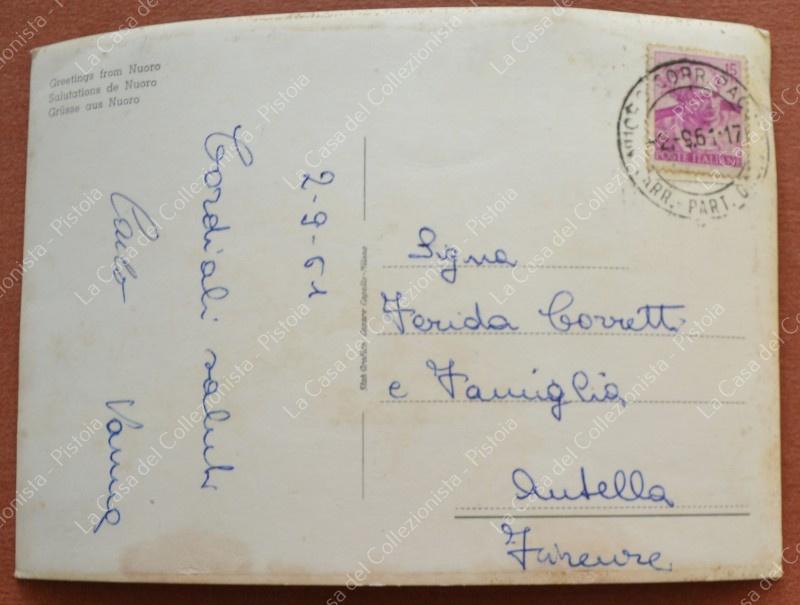 Greetings from Nuoro
Salutations de Nuoro
Grüsse aus Nuoro
2-9-61
Cordiali saluti
Carlo Vanna
Stab. Grafico Cesare Capello - Milano
15
POSTE ITALIANE
CORR. PACCHI
2-9.61·17
ARR.-PART.
Signa
Ferida Corretti
e Famiglia
Antella
Firenze
La Casa del Collezionista - Pistoia